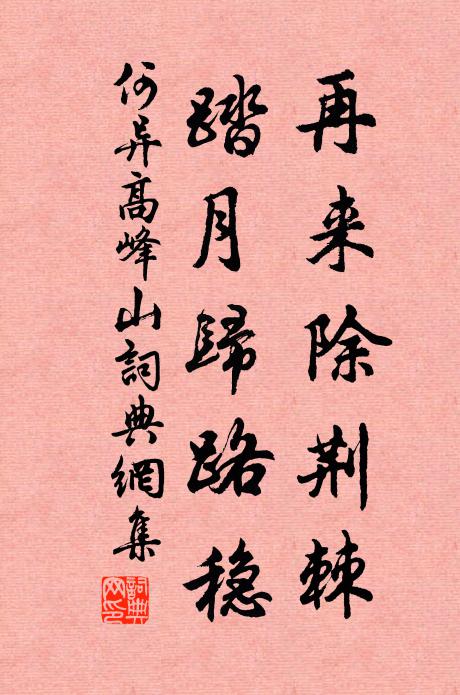 再来除荆棘
踏月歸路稳
何异高峰山詞典網集
詞典网印